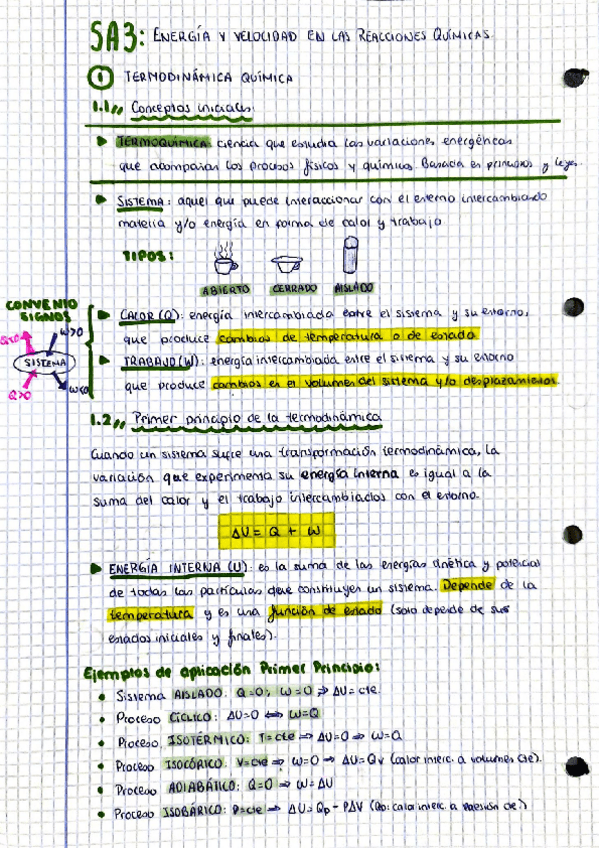 SA3: ENERGÍA Y VELOCIDAD EN LAS REACCIONES QUÍMICAS.
1 TERMODINÁMICA QUÍMICA
1.1,, Conceptos iniciales.
TERMOQUÍMICA: ciencia que estudia las variaciones energéticas
que acompañan los procesos físicos y químicos. Basada en principios y leyes.
SISTEMA: aquel que puede interaccionar con el entorno intercambiando
materia y/o energía en forma de calor y trabajo
TIPOS:
ABIERTO CERRADO AISLADO
CONVENIO
SIGNOS
Q<0 W>0
SISTEMA
Q>0 W<0
CALOR (Q): energía intercambiada entre el sistema y su entorno,
que produce cambios de temperatura o de estado
TRABAJO (W): energía intercambiada entre el sistema y su entorno
que produce cambios en el volumen del sistema y/o desplazamientos.
1.2,, Primer principio de la termodinámica
Cuando un sistema sufre una transformación termodinámica, la
variación que experimenta su energía interna es igual a la
suma del calor y el trabajo intercambiados con el entorno.
ΔU = Q + W
ENERGÍA INTERNA (U): es la suma de las energías cinética y potencial
de todas las partículas que constituyen un sistema. Depende de la
temperatura y es una función de estado (solo depende de sus
estados iniciales y finales).
Ejemplos de aplicación Primer Principio:
Sistema AISLADO: Q=0; W=0 ⇒ ΔU = cte.
Proceso CÍCLICO: ΔU=0 ⟺ W=Q
Proceso ISOTÉRMICO: T=cte ⇒ ΔU=0 ⇒ W=Q
Proceso ISOCÓRICO: V=cte ⇒ W=0 ⇒ ΔU=Qv (calor interc. a volumen cte).
Proceso ADIABÁTICO: Q=0 ⇒ W=ΔU
Proceso ISOBÁRICO: P=cte ⇒ ΔU=Qp - PΔV (Qp: calor interc. a presión cte.)